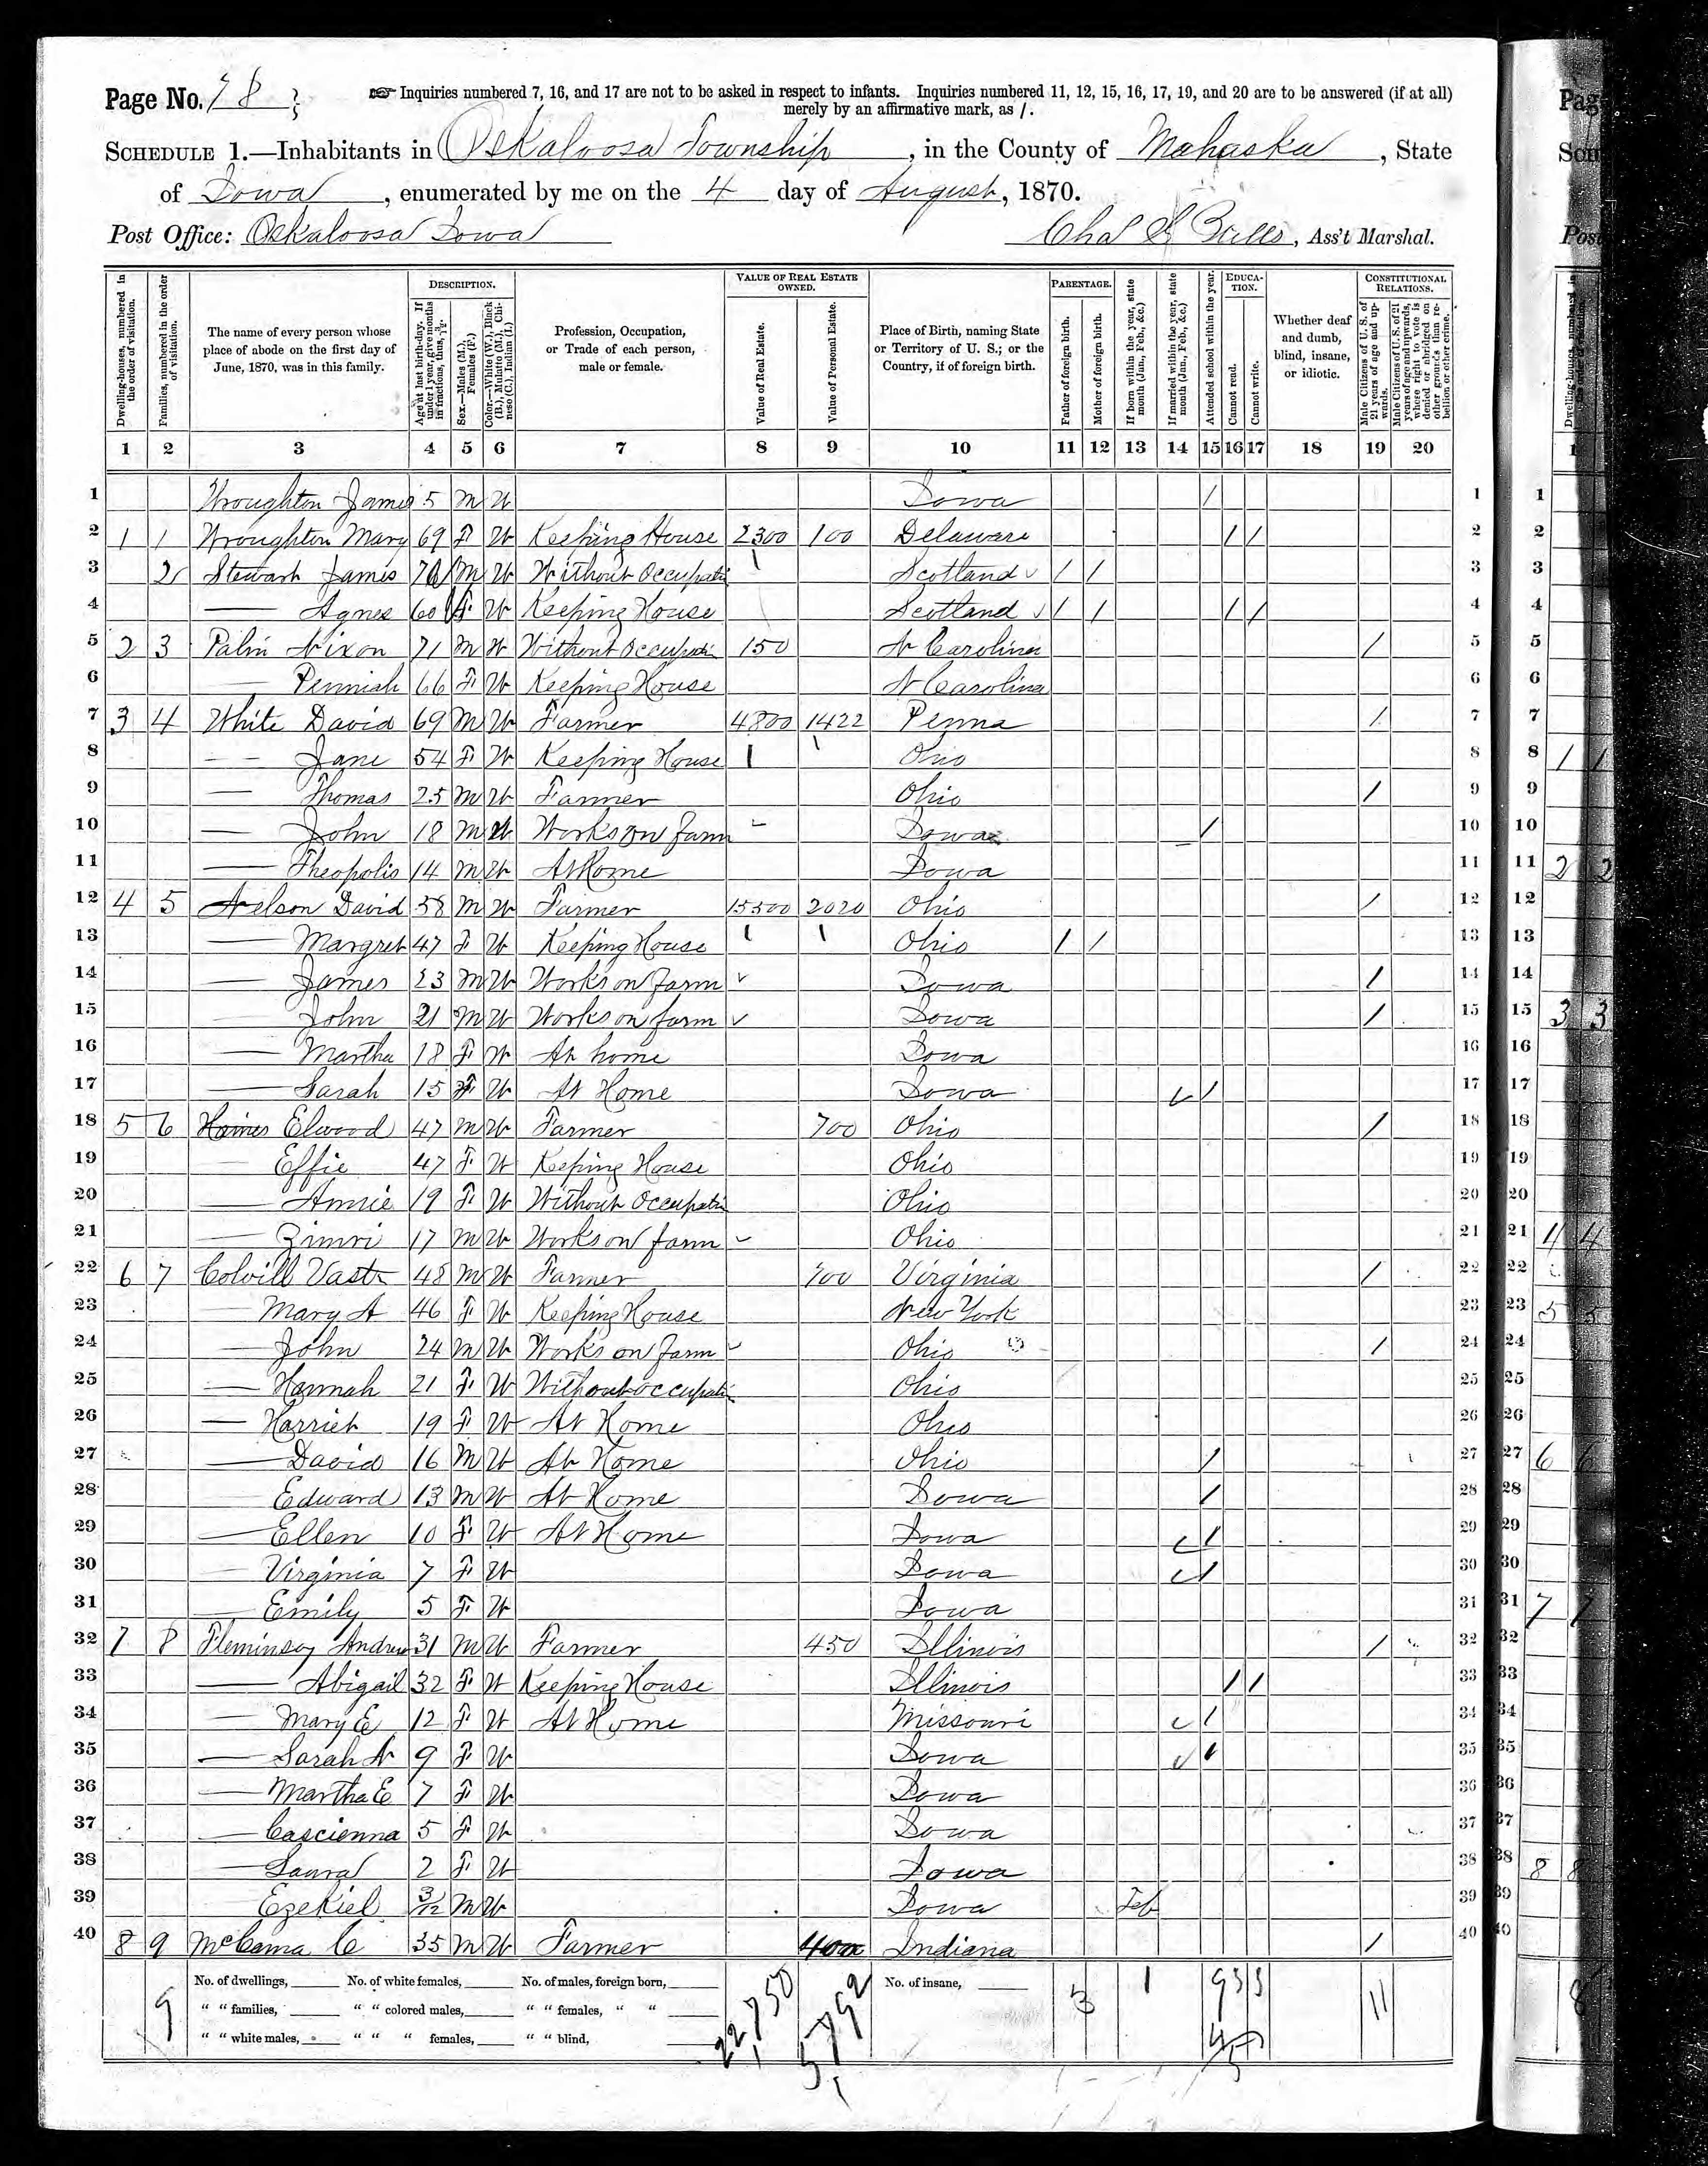 Page No. 78
☞ Inquiries numbered 7, 16, and 17 are not to be asked in respect to infants. Inquiries numbered 11, 12, 15, 16, 17, 19, and 20 are to be answered (if at all)
merely by an affirmative mark, as /.
SCHEDULE 1.—Inhabitants in Oskaloosa Township, in the County of Mahaska, State
of Iowa, enumerated by me on the 4 day of August, 1870.
Post Office: Oskaloosa Iowa
Ass't Marshal.
Dwelling-houses, numbered in the order of visitation.
Families, numbered in the order of visitation.
The name of every person whose place of abode on the first day of June, 1870, was in this family.
DESCRIPTION.
Age at last birth-day. If under 1 year, give months in fractions, thus, 3/12.
Sex.—Males (M.), Females (F.)
Color.—White (W.), Black (B.), Mulatto (M.), Chinese (C.), Indian (I.)
Profession, Occupation, or Trade of each person, male or female.
VALUE OF REAL ESTATE OWNED.
Value of Real Estate.
Value of Personal Estate.
Place of Birth, naming State or Territory of U. S.; or the Country, if of foreign birth.
PARENTAGE.
Father of foreign birth.
Mother of foreign birth.
If born within the year, state month (Jan., Feb., &c.)
If married within the year, state month (Jan., Feb., &c.)
Attended school within the year.
EDUCATION.
Cannot read.
Cannot write.
Whether deaf and dumb, blind, insane, or idiotic.
CONSTITUTIONAL RELATIONS.
Male Citizens of U. S. of 21 years of age and upwards.
Male Citizens of U. S. of 21 years of age and upwards, where right to vote is denied or abridged on other grounds than rebellion or other crime.
1 2 3 4 5 6 7 8 9 10 11 12 13 14 15 16 17 18 19 20
1 Wroughton James 5 M W Iowa / 1
2 1 1 Wroughton Mary 69 F W Keeping House 2300 100 Delaware / / 2
3 2 Stewart James M W Without Occupati Scotland / / 3
4 — Agnes 60 F W Keeping House Scotland / / / / 4
5 2 3 Palin Nixon 71 M W Without Occupati 150 N Carolina / 5
6 — Penniah 66 F W Keeping House N Carolina 6
7 3 4 White David 69 M W Farmer 4800 1422 Penna / 7
8 — Jane 54 F W Keeping House Ohio 8
9 — Thomas 25 M W Farmer Ohio / 9
10 — John 18 M W Works on farm Iowa / 10
11 — Theopolis 14 M W At Home Iowa 11
12 4 5 Nelson David 58 M W Farmer 15500 2020 Ohio / 12
13 — Margret 47 F W Keeping House Ohio / / 13
14 — James 23 M W Works on farm Iowa / 14
15 — John 21 M W Works on farm Iowa / 15
16 — Martha 18 F W At home Iowa 16
17 — Sarah 15 F W At Home Iowa / 17
18 5 6 Haines Elwood 47 M W Farmer 700 Ohio / 18
19 — Effie 47 F W Keeping House Ohio 19
20 — Annie 19 F W Without Occupati Ohio 20
21 — Zimri 17 M W Works on farm Ohio 21
22 6 7 Colvill 48 M W Farmer 700 Virginia / 22
23 — Mary A 46 F W Keeping House New York 23
24 — John 24 M W Works on farm Ohio / 24
25 — Hannah 21 F W Without occupati Ohio 25
26 — Harriet 19 F W At Home Ohio 26
27 — David 16 M W At Home Ohio / 27
28 — Edward 13 M W At Home Iowa / 28
29 — Ellen 10 F W At Home Iowa / 29
30 — Virginia 7 F W Iowa / 30
31 — Emily 5 F W Iowa 31
32 7 8 Andrew 31 M W Farmer 450 Illinois / 32
33 — Abigail 32 F W Keeping House Illinois / / 33
34 — Mary E 12 F W At Home Missouri / 34
35 — Sarah A 9 F W Iowa / 35
36 — Martha E 7 F W Iowa 36
37 — Cascienna 5 F W Iowa 37
38 — Laura 2 F W Iowa 38
39 — Ezekiel 3/12 M W Iowa Feb 39
40 8 9 C 35 M W Farmer 400 Indiana / 40
No. of dwellings, No. of white females, No. of males, foreign born, No. of insane,
" " families, " " colored males, " " females, " "
" " white males, " " " females, " " blind,
9 22,750 5792 3 1 9 3 3 11